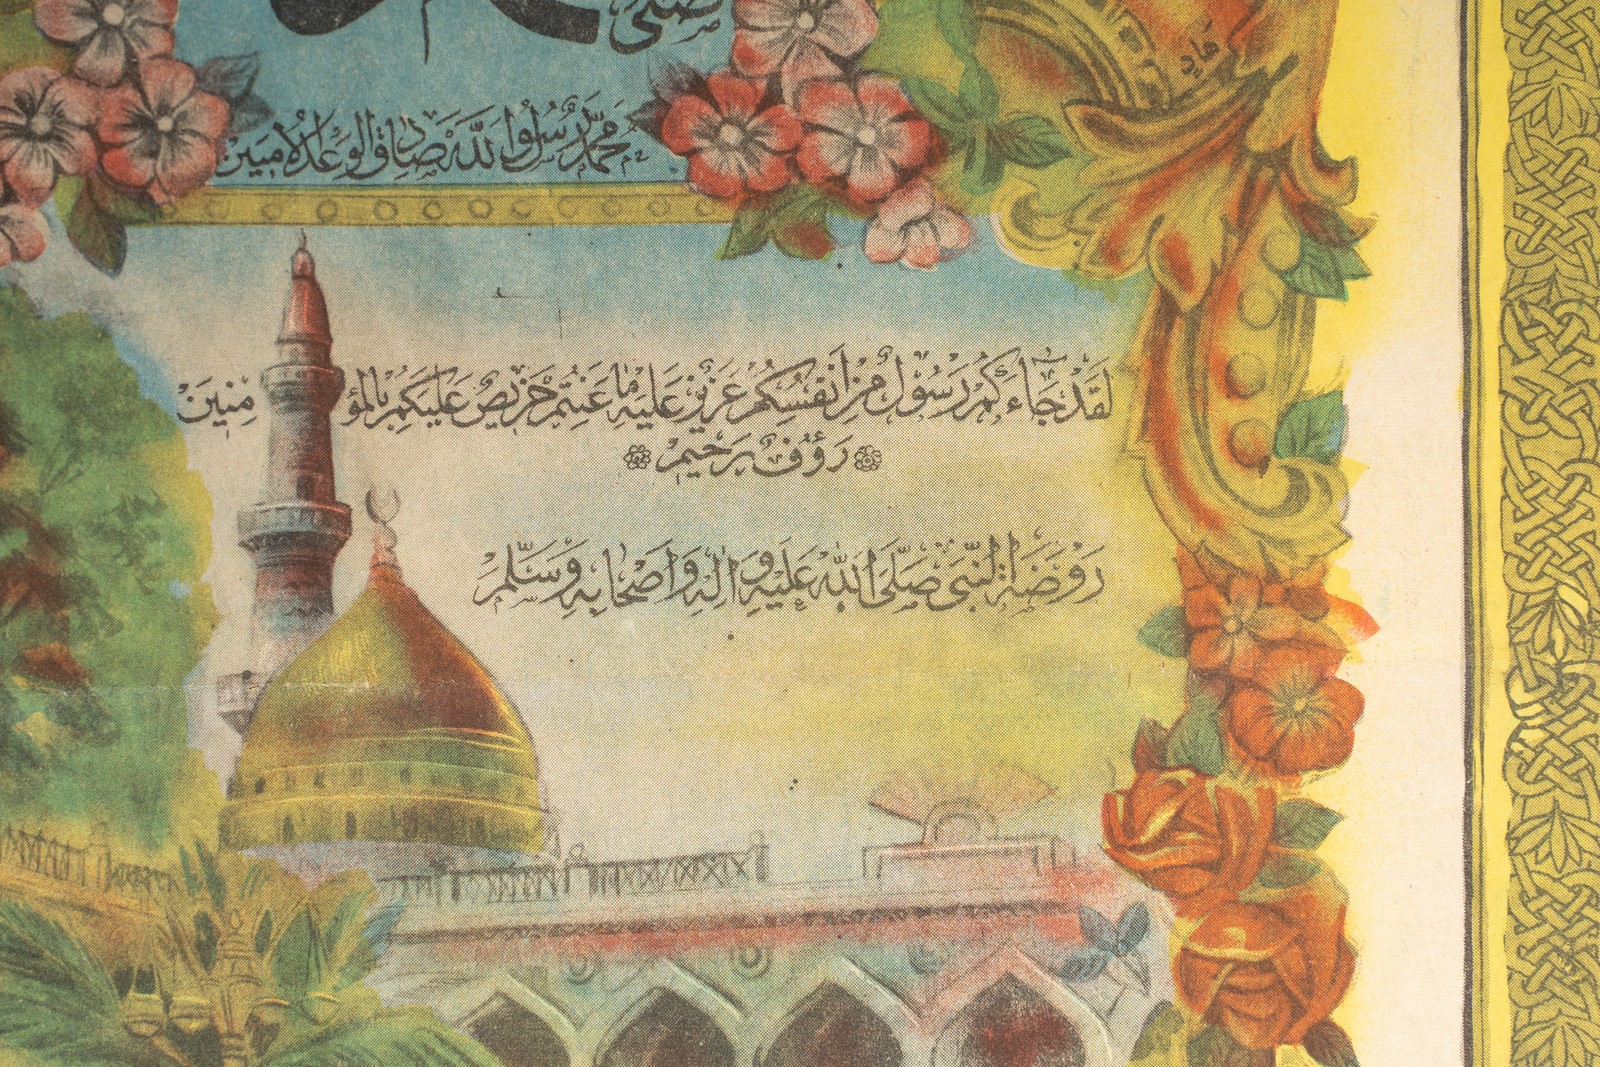 صلى
محمد رسول الله صادق الوعد الامين
لقد جاءكم رسول من انفسكم عزيز عليه ما عنتم حريص عليكم بالمؤمنين
رؤف رحيم
روضة النبي صلى الله عليه و اله و اصحابه وسلم